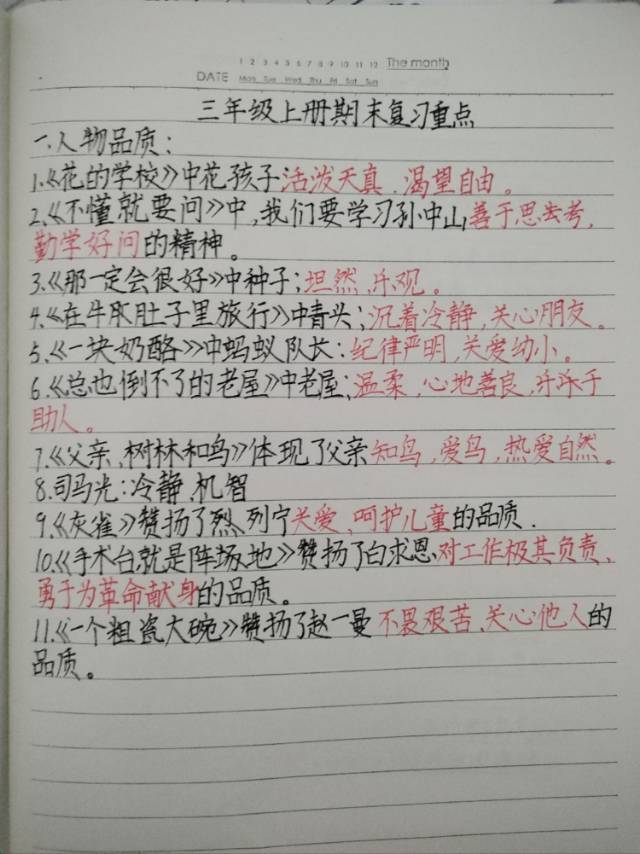 1 2 3 4 5 6 7 8 9 10 11 12 The month
DATE Mon Tue Wed Thu Fri Sat Sun
三年级上册期末复习重点
一.人物品质：
1.《花的学校》中花孩子活泼天真、渴望自由。
2.《不懂就要问》中,我们要学习孙中山善于思考,
勤学好问的精神。
3.《那一定会很好》中种子：坦然、乐观。
4.《在牛肚子里旅行》中青头：沉着冷静,关心朋友。
5.《一块奶酪》中蚂蚁队长：纪律严明,关爱幼小。
6.《总也倒不了的老屋》中老屋：温柔,心地善良,乐于
助人。
7.《父亲、树林和鸟》体现了父亲知鸟,爱鸟,热爱自然。
8.司马光：冷静、机智
9.《灰雀》赞扬了列宁关爱、呵护儿童的品质.
10.《手术台就是阵地》赞扬了白求恩对工作极其负责、
勇于为革命献身的品质。
11.《一个粗瓷大碗》赞扬了赵一曼不畏艰苦、关心他人的
品质。